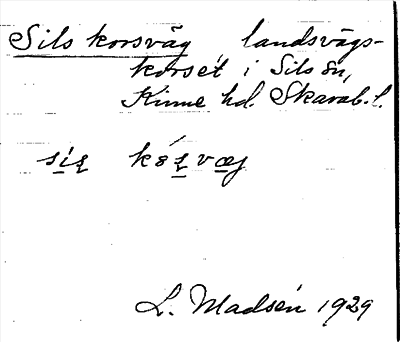 Sils korsväg, landsvägs-
korset i Sils sn,
Kinne hd. Skarab. l.
L. Madsén 1929